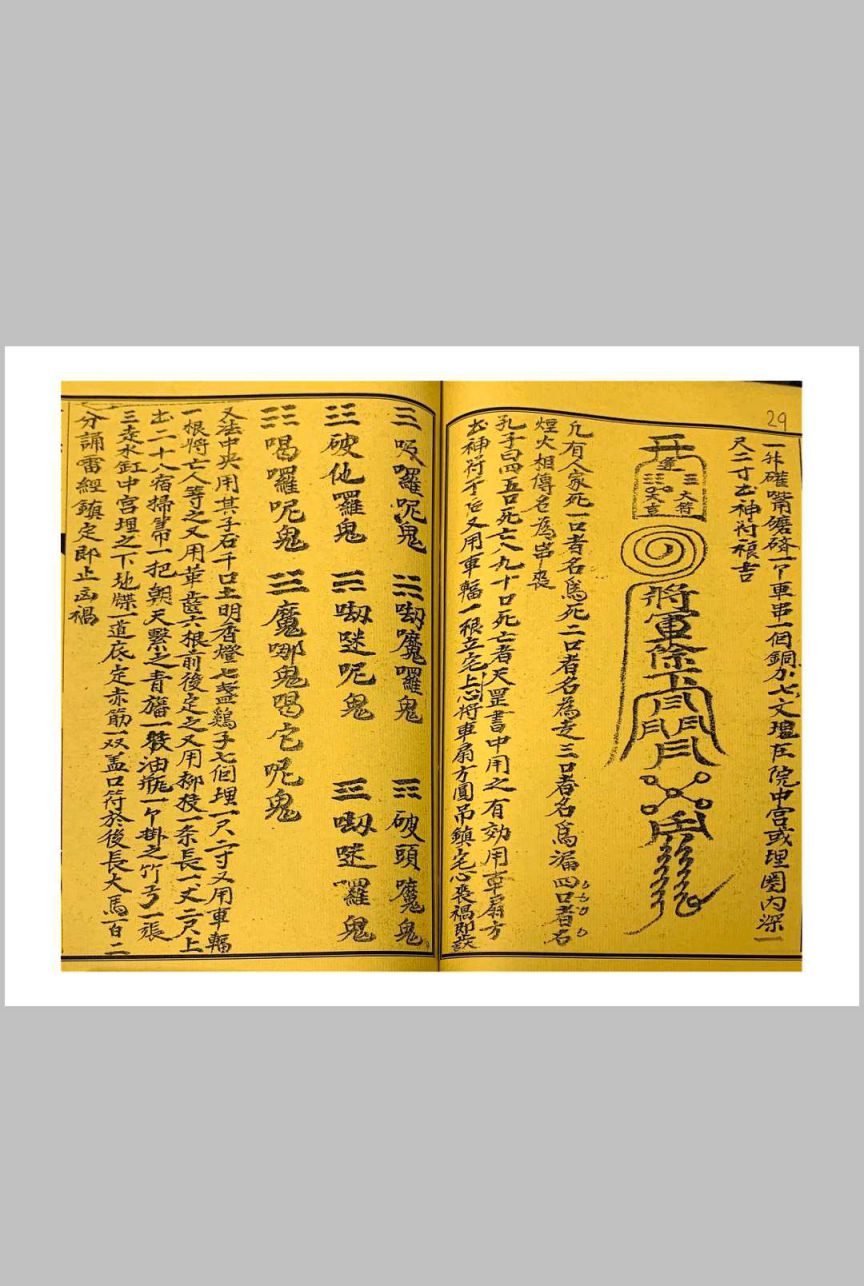 29
一升礶嘴鏕磅一个車串一個銅力七文壇在院中宮或埋圈内深一
尺二寸出神符禳吉
大符
將軍
凢有人家死一口者名爲死二口者名為走三口者名爲漏四口者名
煙火相傳名爲串喪
孔子曰四五口死亡八九十口死亡者天罡書中用之有効用車扇方
出神符一个又用車輻一根立宅上心將車扇方圓吊鎮宅心喪禍即
三吸囉呢鬼 魔囉鬼 破頭魔鬼
破他囉鬼 呢鬼 囉鬼
喝囉呢鬼 魔哪鬼喝它呢鬼
又法中央用其子石千口土明香燈七盞鷄子七個埋一尺二寸又用車輻
一根將亡人等之又用葦蓆六根前後定之又用栁枝一条長一丈二尺上
出二十八宿掃箒一把朝天繫之青旛一發油瓶一个掛之竹弓一張
三走水缸中宮埋之下地牒一道底定赤筋一双盖口符於後長大馬一百二
分誦雷經鎮定即止凶禍